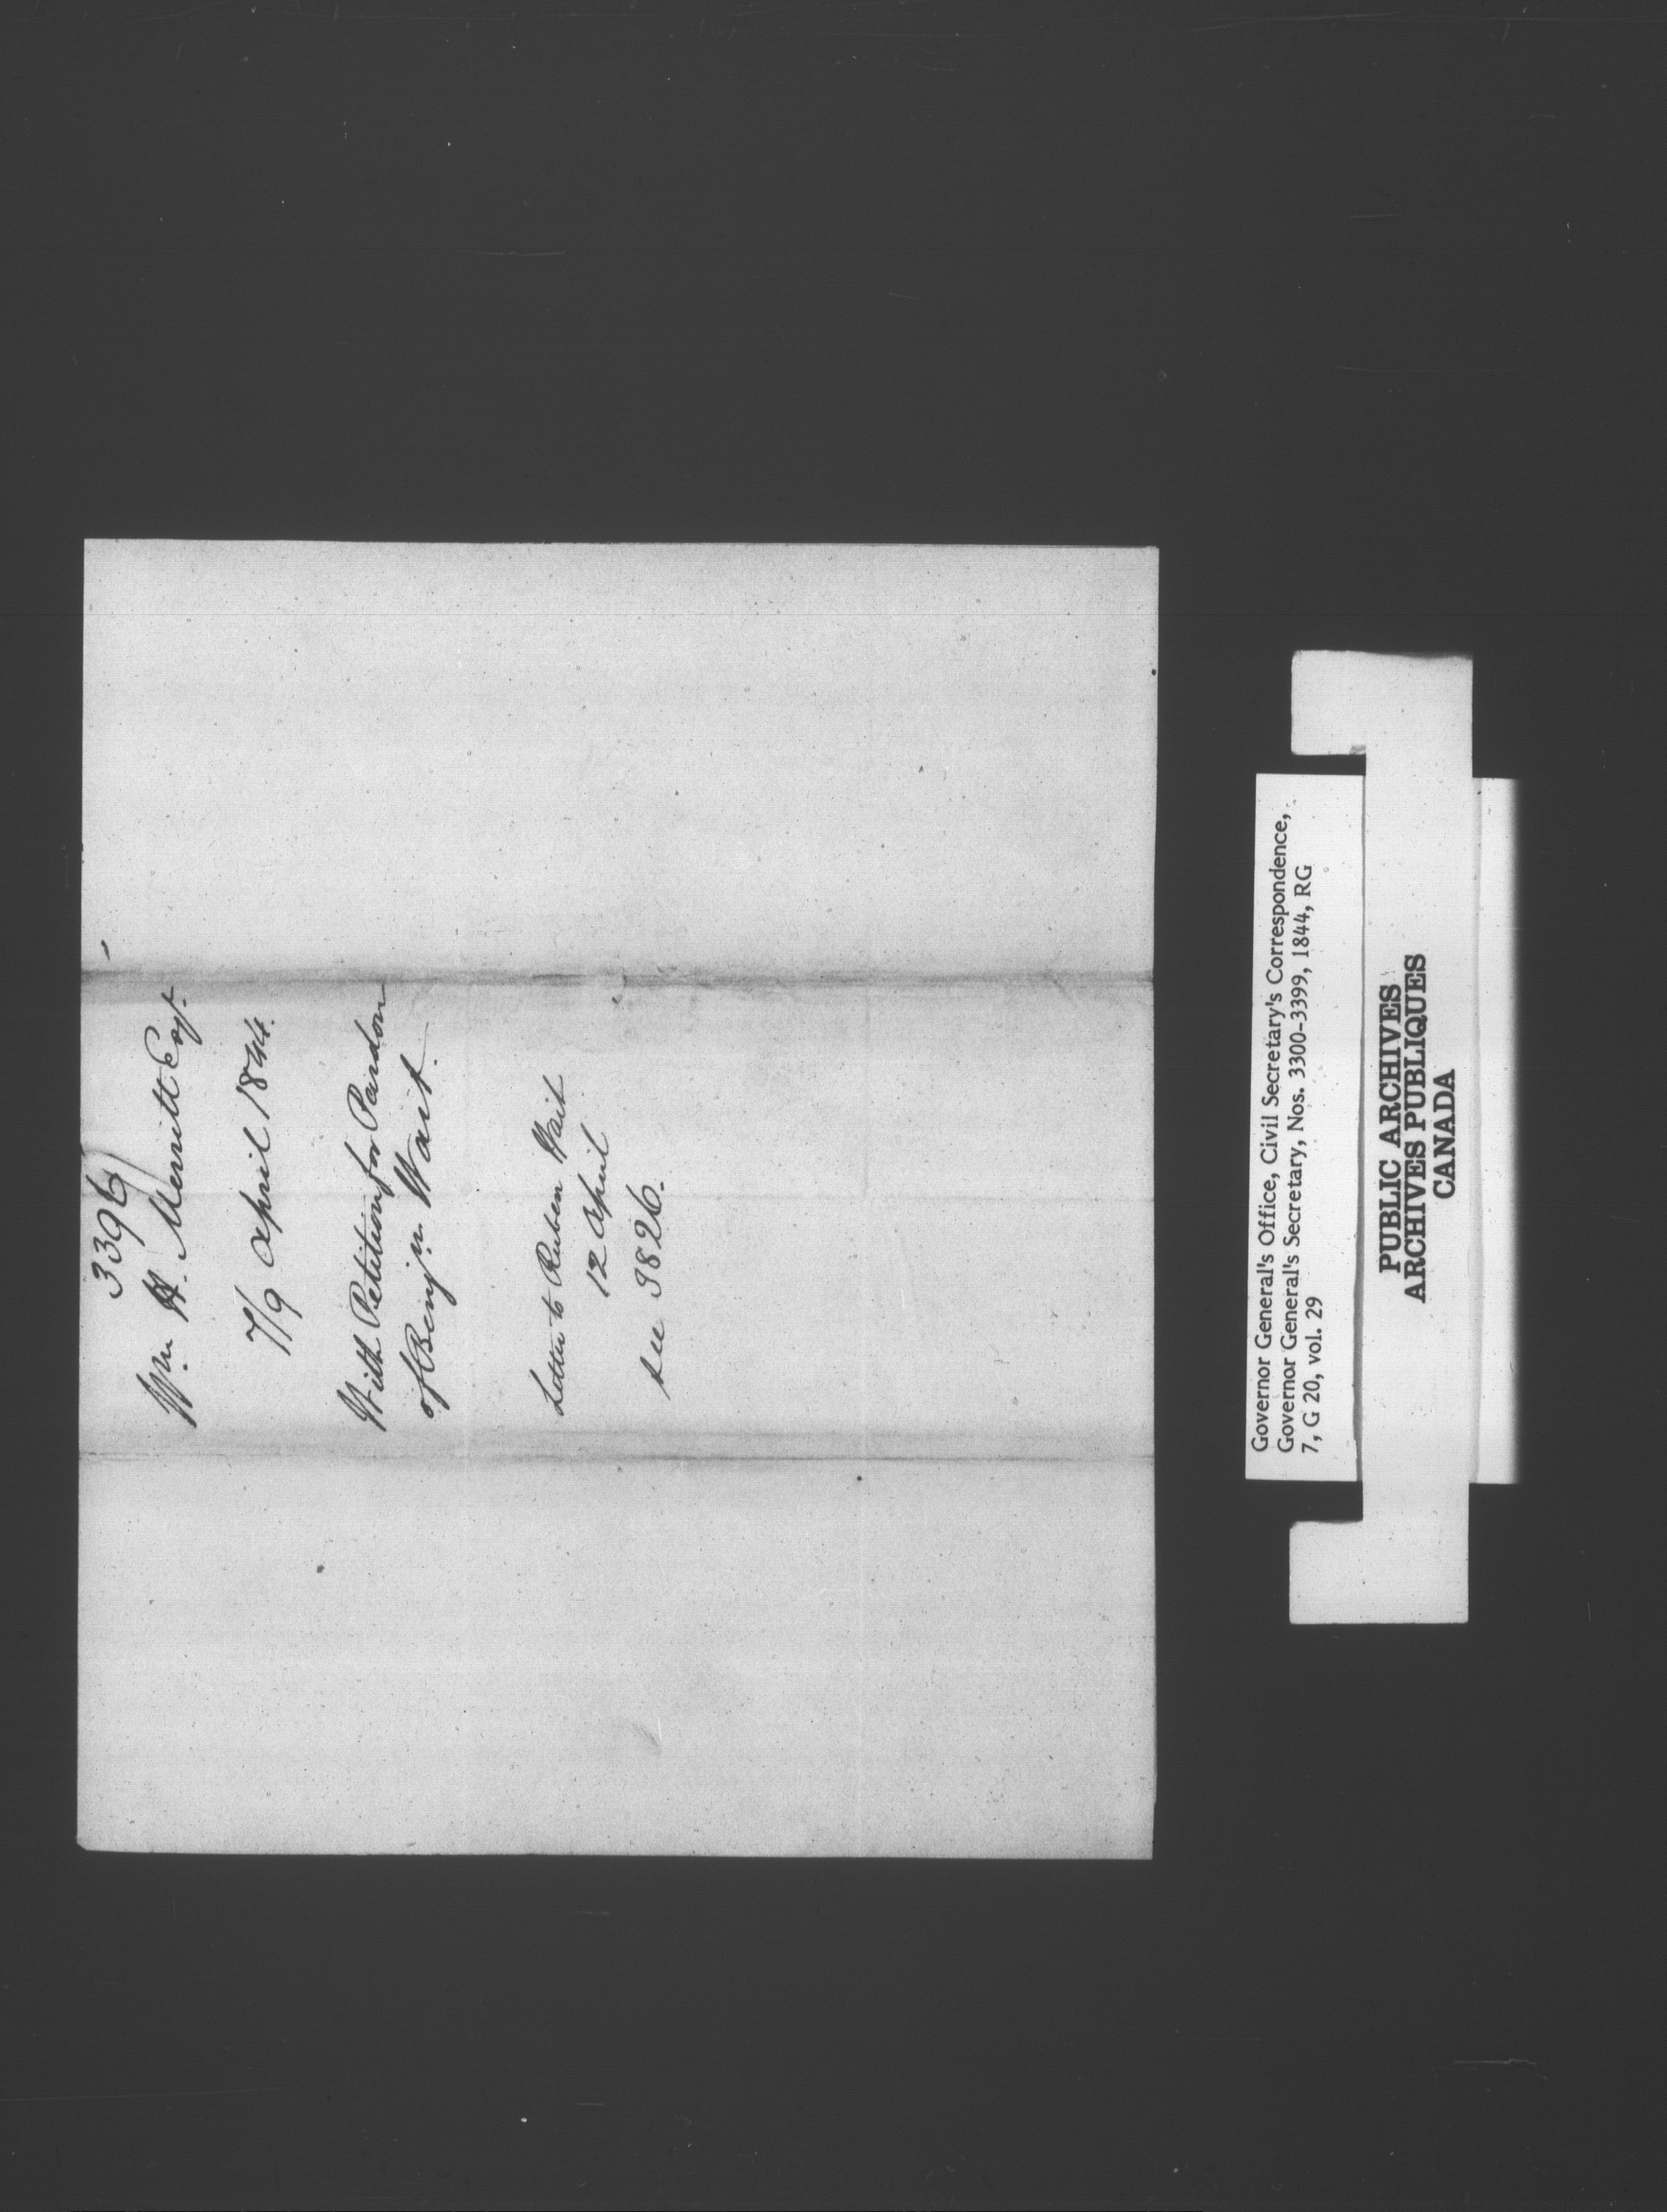 3396
Wm H. Merritt Esqr.
7/9 April 1844.
With Petition for Pardon
of Benjn. Wait.
Letter to Ruben Wait
12 April
see 3826.
Governor General's Office, Civil Secretary's Correspondence,
Governor General's Secretary, Nos. 3300-3399, 1844, RG
7, G 20, vol. 29
PUBLIC ARCHIVES
ARCHIVES PUBLIQUES
CANADA